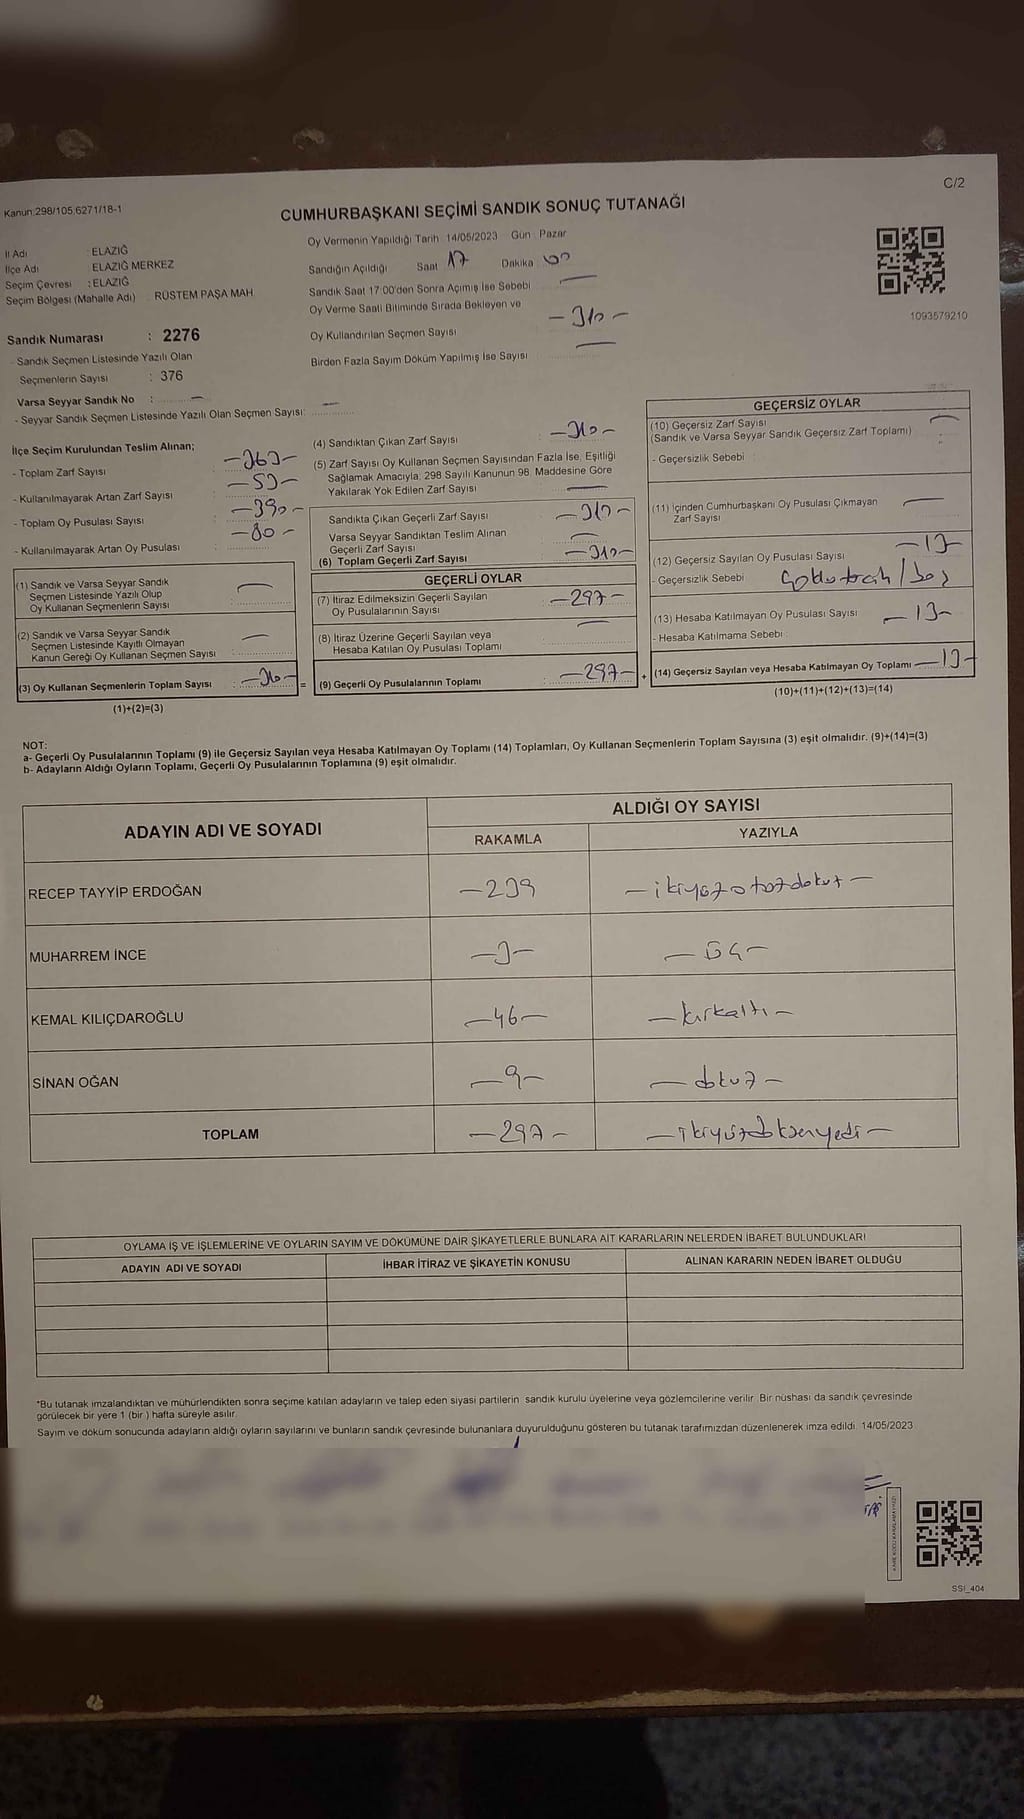 C/2
Kanun:298/105,6271/18-1
CUMHURBAŞKANI SEÇİMİ SANDIK SONUÇ TUTANAĞI
İl Adı : ELAZIĞ
İlçe Adı : ELAZIĞ MERKEZ
Seçim Çevresi : ELAZIĞ
Seçim Bölgesi (Mahalle Adı) : RÜSTEM PAŞA MAH.
Sandık Numarası : 2276
- Sandık Seçmen Listesinde Yazılı Olan
Seçmenlerin Sayısı : 376
Varsa Seyyar Sandık No : —
- Seyyar Sandık Seçmen Listesinde Yazılı Olan Seçmen Sayısı: —
Oy Vermenin Yapıldığı Tarih : 14/05/2023 Gün : Pazar
Sandığın Açıldığı Saat 17 Dakika 00
Sandık Saat 17:00'den Sonra Açımış İse Sebebi —
Oy Verme Saati Bitiminde Sırada Bekleyen ve
Oy Kullandırılan Seçmen Sayısı —310—
Birden Fazla Sayım Döküm Yapılmış İse Sayısı —
1093579210
İlçe Seçim Kurulundan Teslim Alınan;
- Toplam Zarf Sayısı —363—
- Kullanılmayarak Artan Zarf Sayısı —53—
- Toplam Oy Pusulası Sayısı —390—
- Kullanılmayarak Artan Oy Pusulası —80—
(1) Sandık ve Varsa Seyyar Sandık
Seçmen Listesinde Yazılı Olup
Oy Kullanan Seçmenlerin Sayısı : —
(2) Sandık ve Varsa Seyyar Sandık
Seçmen Listesinde Kayıtlı Olmayan
Kanun Gereği Oy Kullanan Seçmen Sayısı : —
(3) Oy Kullanan Seçmenlerin Toplam Sayısı : —310— =
(1)+(2)=(3)
(4) Sandıktan Çıkan Zarf Sayısı : —310—
(5) Zarf Sayısı Oy Kullanan Seçmen Sayısından Fazla İse, Eşitliği
Sağlamak Amacıyla, 298 Sayılı Kanunun 98. Maddesine Göre
Yakılarak Yok Edilen Zarf Sayısı —
Sandıkta Çıkan Geçerli Zarf Sayısı —310—
Varsa Seyyar Sandıktan Teslim Alınan
Geçerli Zarf Sayısı —
(6) Toplam Geçerli Zarf Sayısı —310—
GEÇERLİ OYLAR
(7) İtiraz Edilmeksizin Geçerli Sayılan
Oy Pusulalarının Sayısı —297—
(8) İtiraz Üzerine Geçerli Sayılan veya
Hesaba Katılan Oy Pusulası Toplamı —
(9) Geçerli Oy Pusulalarının Toplamı —297— +
GEÇERSİZ OYLAR
(10) Geçersiz Zarf Sayısı
(Sandık ve Varsa Seyyar Sandık Geçersiz Zarf Toplamı) —
- Geçersizlik Sebebi
(11) İçinden Cumhurbaşkanı Oy Pusulası Çıkmayan
Zarf Sayısı —
(12) Geçersiz Sayılan Oy Pusulası Sayısı —13—
- Geçersizlik Sebebi
(13) Hesaba Katılmayan Oy Pusulası Sayısı —13—
- Hesaba Katılmama Sebebi :
(14) Geçersiz Sayılan veya Hesaba Katılmayan Oy Toplamı —13—
(10)+(11)+(12)+(13)=(14)
NOT:
a- Geçerli Oy Pusulalarının Toplamı (9) ile Geçersiz Sayılan veya Hesaba Katılmayan Oy Toplamı (14) Toplamları, Oy Kullanan Seçmenlerin Toplam Sayısına (3) eşit olmalıdır. (9)+(14)=(3)
b- Adayların Aldığı Oyların Toplamı, Geçerli Oy Pusulalarının Toplamına (9) eşit olmalıdır.
ADAYIN ADI VE SOYADI ALDIĞI OY SAYISI
RAKAMLA YAZIYLA
RECEP TAYYİP ERDOĞAN —239 —ikiyüzotuzdokuz—
MUHARREM İNCE —3— —üç—
KEMAL KILIÇDAROĞLU —46— —kırkaltı—
SİNAN OĞAN —9— —dokuz—
TOPLAM —297— —ikiyüzdoksanyedi—
OYLAMA İŞ VE İŞLEMLERİNE VE OYLARIN SAYIM VE DÖKÜMÜNE DAİR ŞİKAYETLERLE BUNLARA AİT KARARLARIN NELERDEN İBARET BULUNDUKLARI
ADAYIN ADI VE SOYADI İHBAR İTİRAZ VE ŞİKAYETİN KONUSU ALINAN KARARIN NEDEN İBARET OLDUĞU
*Bu tutanak imzalandıktan ve mühürlendikten sonra seçime katılan adayların ve talep eden siyasi partilerin sandık kurulu üyelerine veya gözlemcilerine verilir. Bir nüshası da sandık çevresinde
görülecek bir yere 1 (bir ) hafta süreyle asılır.
Sayım ve döküm sonucunda adayların aldığı oyların sayılarını ve bunların sandık çevresinde bulunanlara duyurulduğunu gösteren bu tutanak tarafımızdan düzenlenerek imza edildi. 14/05/2023
SSI_404